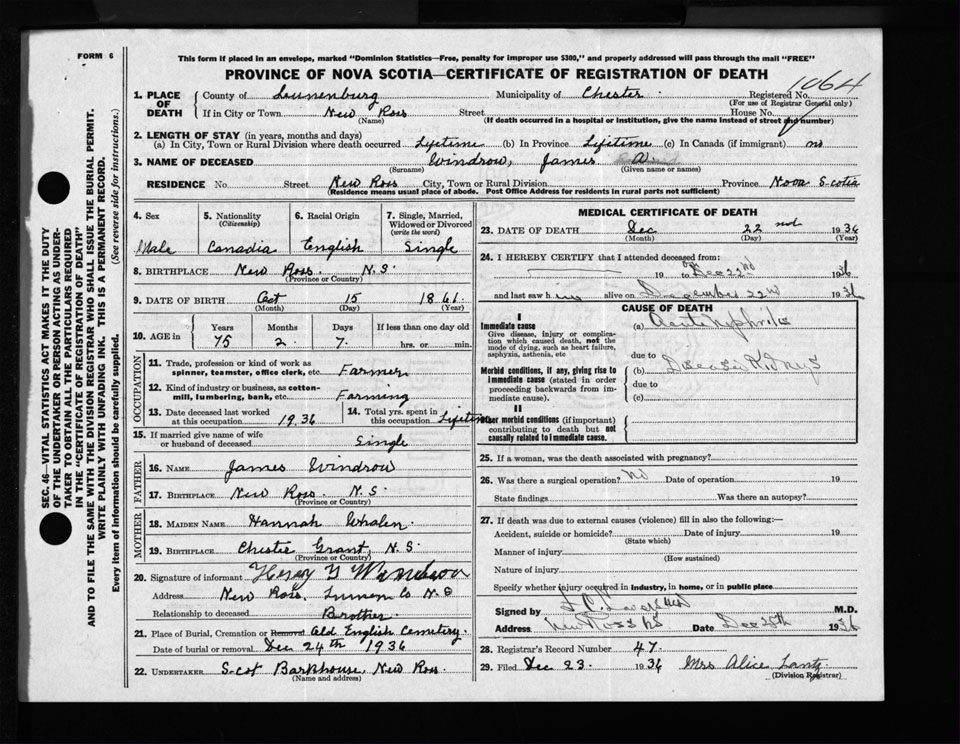 FORM 6
This form if placed in an envelope, marked "Dominion Statistics—Free, penalty for improper use $300," and properly addressed will pass through the mail "FREE"
PROVINCE OF NOVA SCOTIA—CERTIFICATE OF REGISTRATION OF DEATH
1064
1. PLACE OF DEATH { County of Lunenburg Municipality of Chester Registered No.
(For use of Registrar General only)
If in City or Town New Ross Street House No.
(Name) (If death occurred in a hospital or institution, give the name instead of street and number)
2. LENGTH OF STAY (in years, months and days)
(a) In City, Town or Rural Division where death occurred Lifetime (b) In Province Lifetime (c) In Canada (if immigrant) no
3. NAME OF DECEASED Windrow, James
(Surname) (Given name or names)
RESIDENCE No. Street New Ross City, Town or Rural Division Province Nova Scotia
(Residence means usual place of abode. Post Office Address for residents in rural parts not sufficient)
4. Sex Male
5. Nationality (Citizenship) Canadia
6. Racial Origin English
7. Single, Married, Widowed or Divorced (write the word) Single
8. BIRTHPLACE New Ross. N.S.
(Province or Country)
9. DATE OF BIRTH Oct 15 1861
(Month) (Day) (Year)
10. AGE in Years Months Days If less than one day old
75 2 7 hrs. or min.
OCCUPATION
11. Trade, profession or kind of work as spinner, teamster, office clerk, etc. Farmer
12. Kind of industry or business, as cotton-mill, lumbering, bank, etc. Farming
13. Date deceased last worked at this occupation 1936
14. Total yrs. spent in this occupation Lifetime
15. If married give name of wife or husband of deceased Single
FATHER
16. NAME James Windrow
17. BIRTHPLACE New Ross N.S.
(Province or Country)
MOTHER
18. MAIDEN NAME Hannah Whalen
19. BIRTHPLACE Chester Grant, N.S.
(Province or Country)
20. Signature of informant
Address New Ross, Lunen Co N.S
Relationship to deceased Brother
21. Place of Burial, Cremation or Removal Old English Cemetery.
Date of burial or removal Dec 24th 1936
22. UNDERTAKER Scot Barkhouse, New Ross
(Name and address)
MEDICAL CERTIFICATE OF DEATH
23. DATE OF DEATH Dec 22 nd 1936
(Month) (Day) (Year)
24. I HEREBY CERTIFY that I attended deceased from:
19 to Dec 22nd 1936
and last saw him alive on December 22nd 1936
CAUSE OF DEATH
I
Immediate cause
Give disease, injury or complication which caused death, not the mode of dying, such as heart failure, asphyxia, asthenia, etc
(a) Acute Nephritis
due to
Morbid conditions, if any, giving rise to immediate cause (stated in order proceeding backwards from immediate cause).
(b)
due to
(c)
II
Other morbid conditions (if important) contributing to death but not causally related to immediate cause.
25. If a woman, was the death associated with pregnancy?
26. Was there a surgical operation? No Date of operation 19
State findings Was there an autopsy?
27. If death was due to external causes (violence) fill in also the following:—
Accident, suicide or homicide? Date of injury 19
(State which)
Manner of injury
(How sustained)
Nature of injury
Specify whether injury occurred in industry, in home, or in public place
Signed by M.D.
Address New Ross NS Date 1936
28. Registrar's Record Number 47.
29. Filed Dec 23. 1936 Mrs Alice Lantz
(Division Registrar)
SEC. 46—VITAL STATISTICS ACT MAKES IT THE DUTY
OF THE UNDERTAKER OR PERSON ACTING AS UNDER-
TAKER TO OBTAIN ALL THE PARTICULARS REQUIRED
IN THE "CERTIFICATE OF REGISTRATION OF DEATH"
AND TO FILE THE SAME WITH THE DIVISION REGISTRAR WHO SHALL ISSUE THE BURIAL PERMIT.
WRITE PLAINLY WITH UNFADING INK. THIS IS A PERMANENT RECORD.
Every item of information should be carefully supplied. (See reverse side for instructions.)